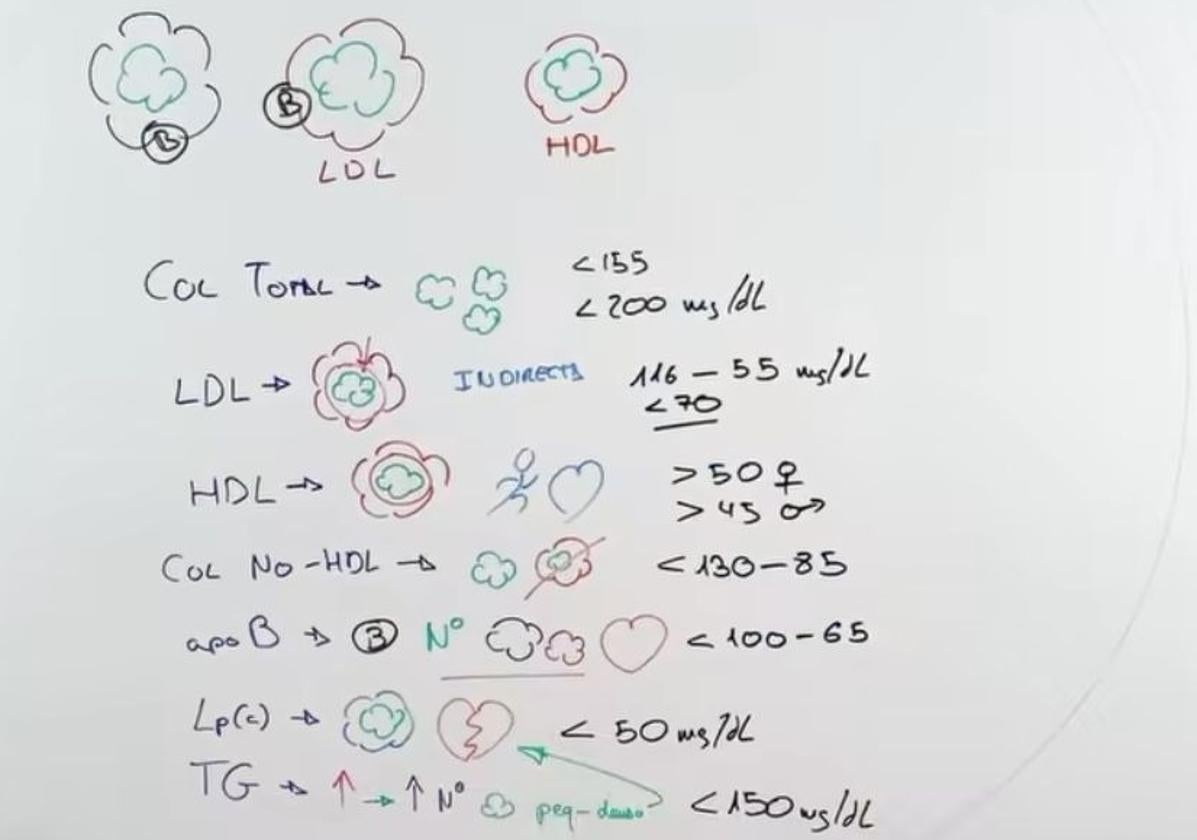 B
B
LDL
HDL
Col Total → <155
<200 mg/dL
LDL → INDIRECTA 116 – 55 mg/dL
<70
HDL → >50 ♀
>45 ♂
Col No-HDL → <130–85
apo B → B Nº <100–65
Lp(a) → < 50 mg/dL
TG → ↑ → ↑ Nº peq-denso <150 mg/dL